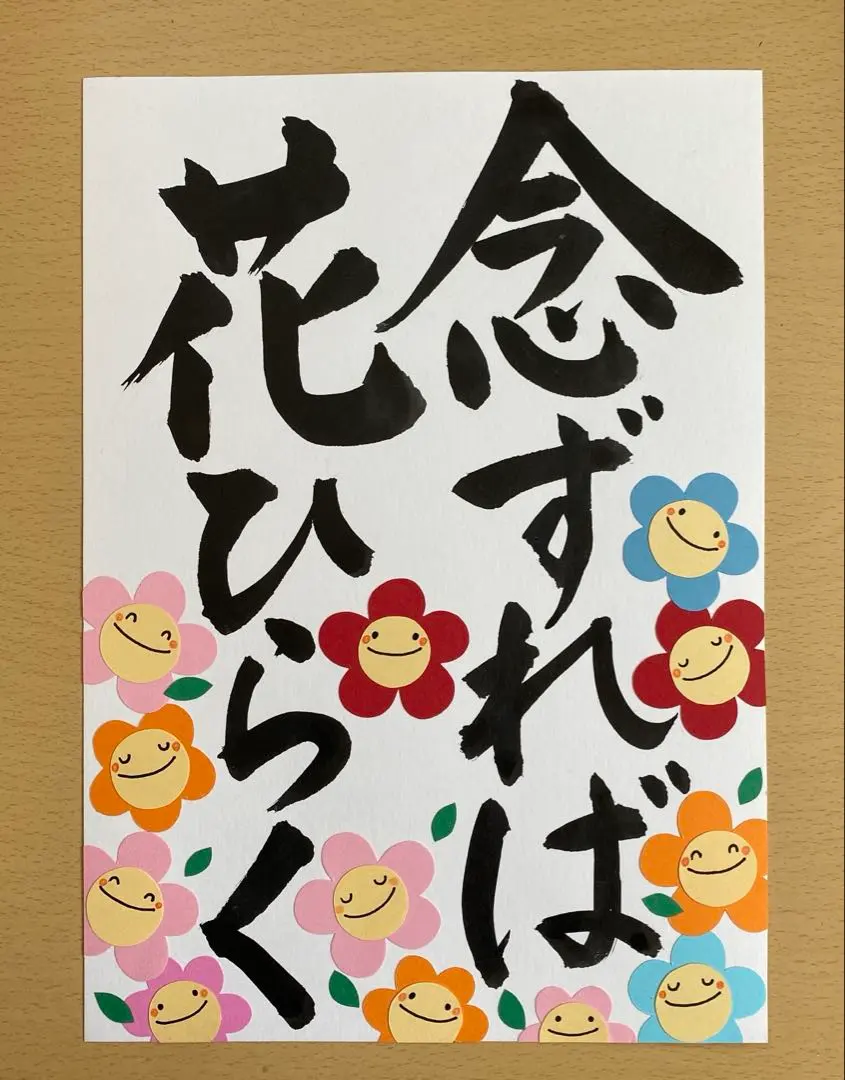 念ずれば
花ひらく